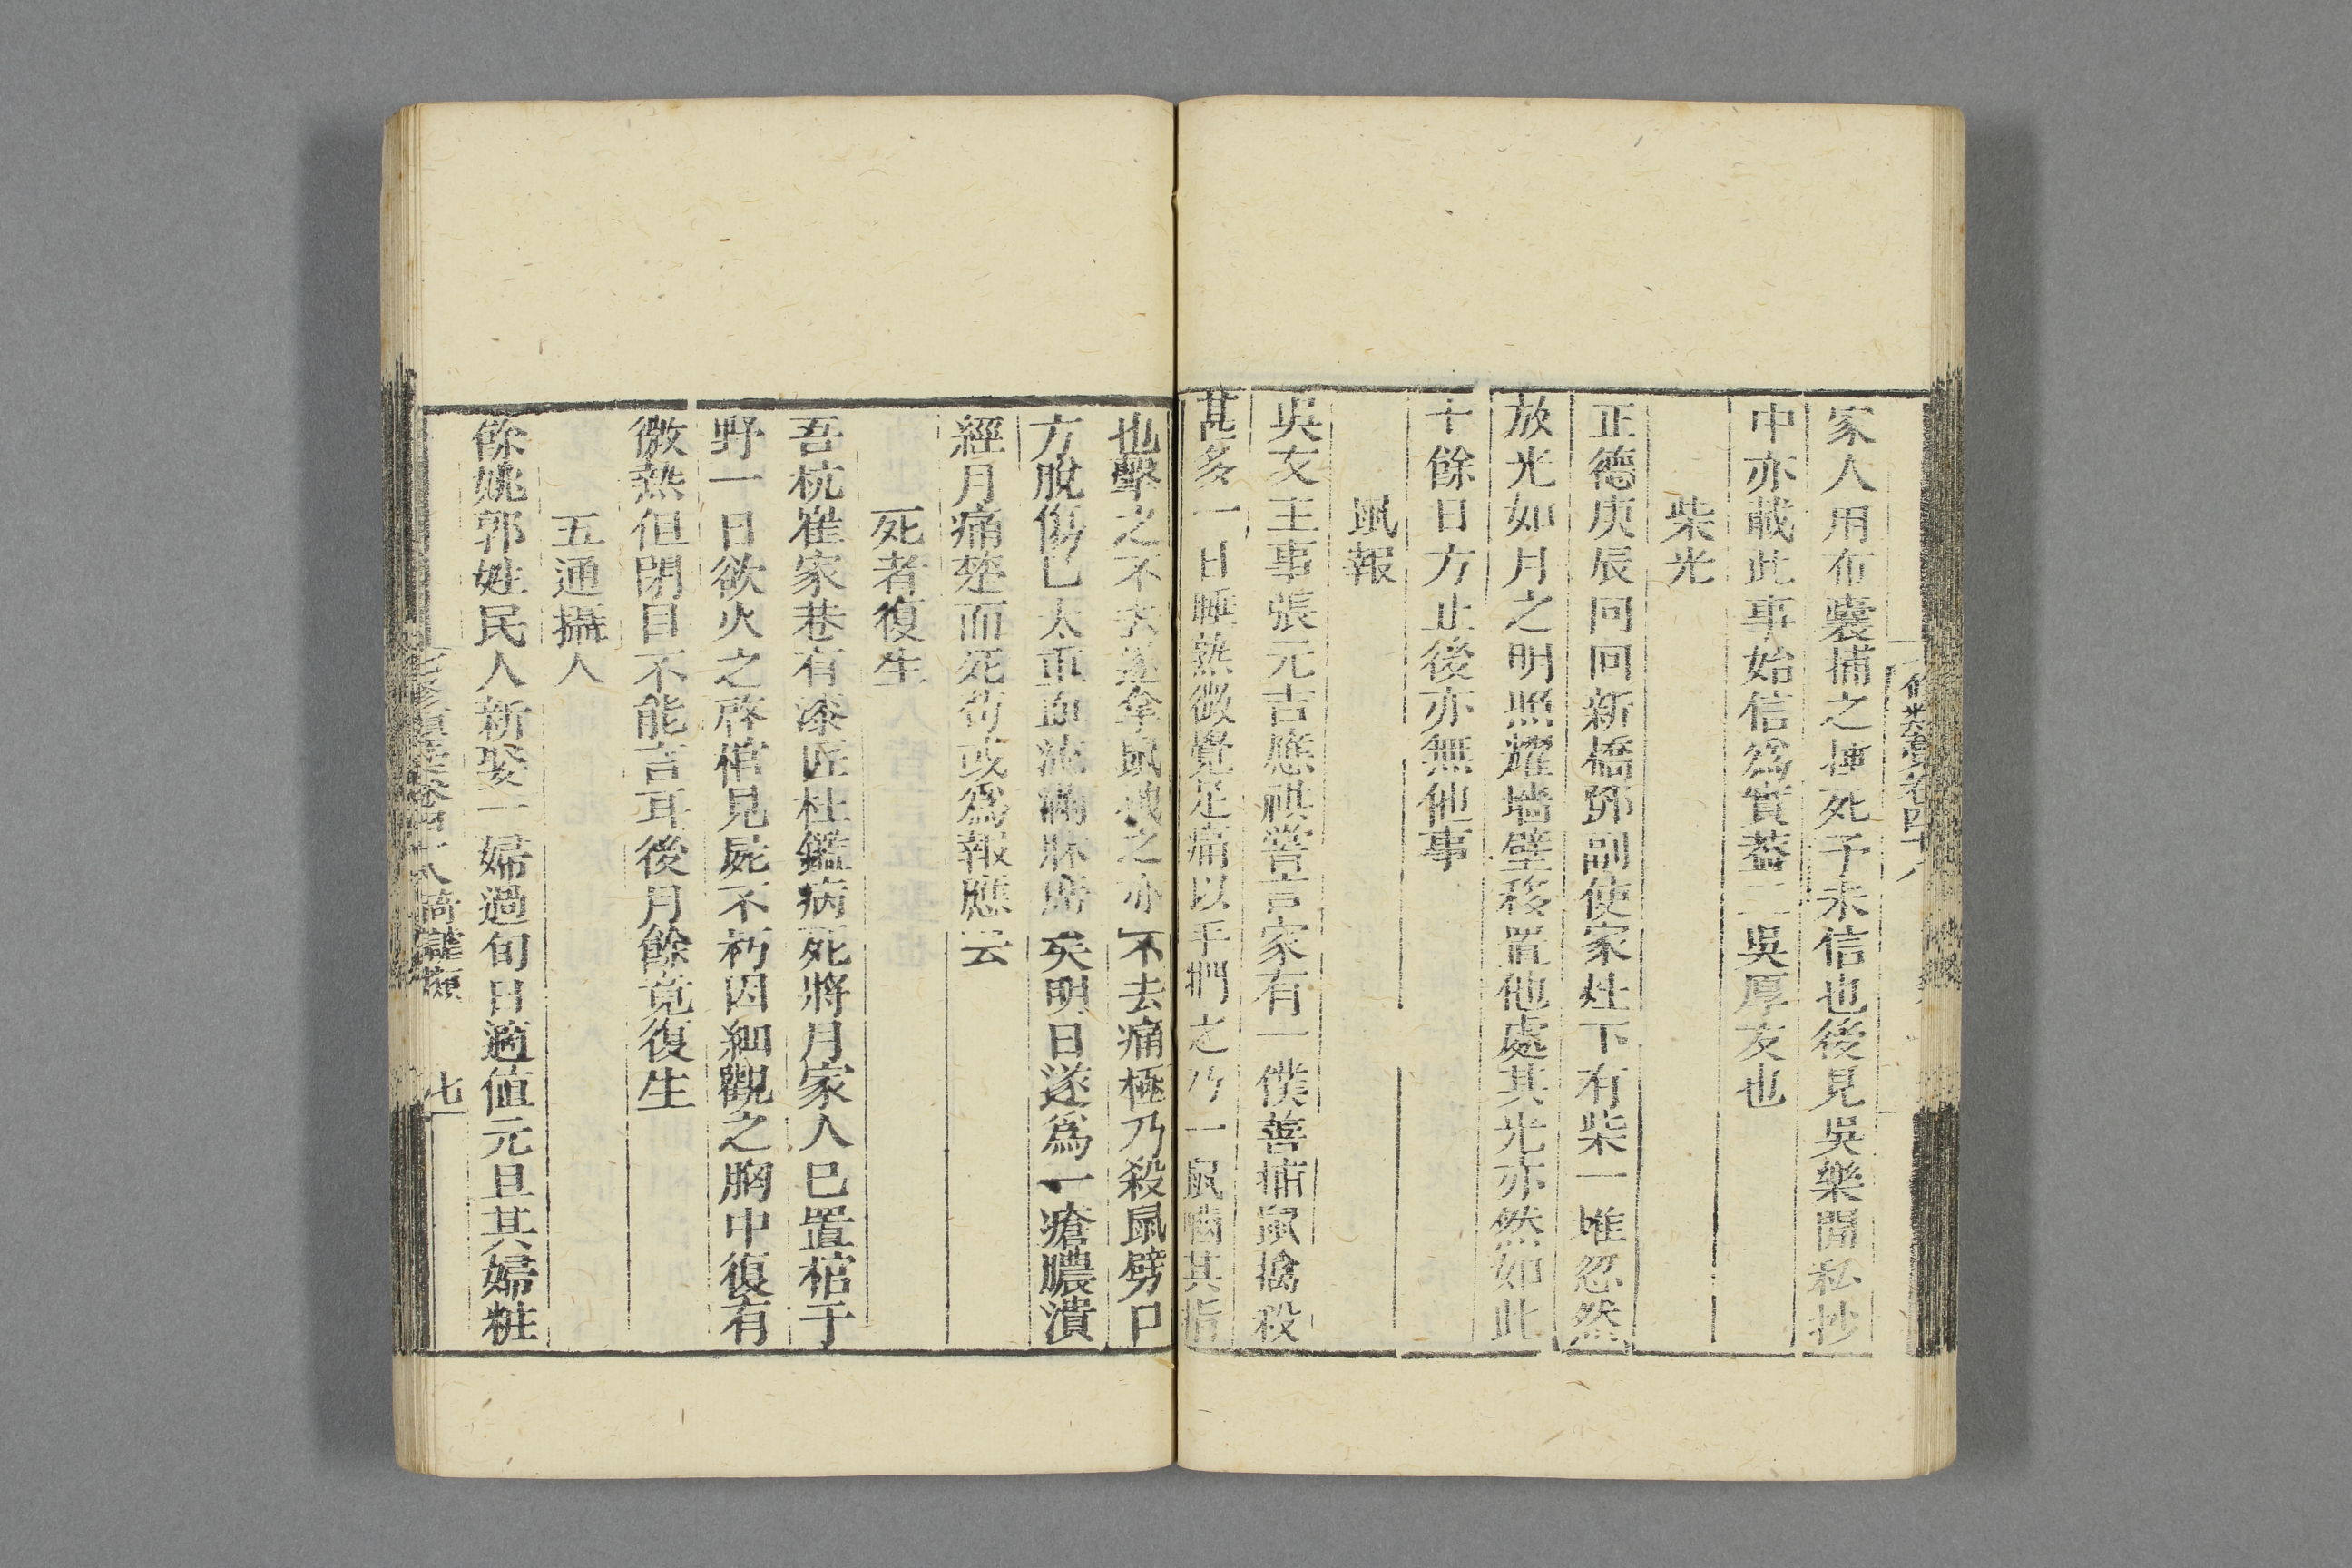 家人用布囊捕之捶死予未信也後見吳樂閒私抄
中亦載此事始信爲實蓋二吳厚友也
柴光
正德庚辰同回新橋鄧副使家灶下有柴一堆忽然
放光如月之明照耀墻壁移置他處其光亦然如此
十餘日方止後亦無他事
鼠報
吳友王事張元吉應祺嘗言家有一僕善捕鼠擒殺
甚多一日睡熟微覺足痛以手捫之乃一鼠嚙其指
也擊之不去遂拿鼠之亦不去痛極乃殺鼠劈口
方脫傷已太重血流滿牀席矣明日遂爲一瘡膿潰
經月痛楚而死苟或爲報應云
死者復生
吾杭崔家巷有漆匠杜鑑病死將月家人已置棺于
野一日欲火之啓棺見屍不朽因細觀之胸中復有
微熱但閉目不能言耳後月餘竟復生
五通攝人
餘姚郭姓民人新娶一婦過旬日適值元旦其婦粧
七